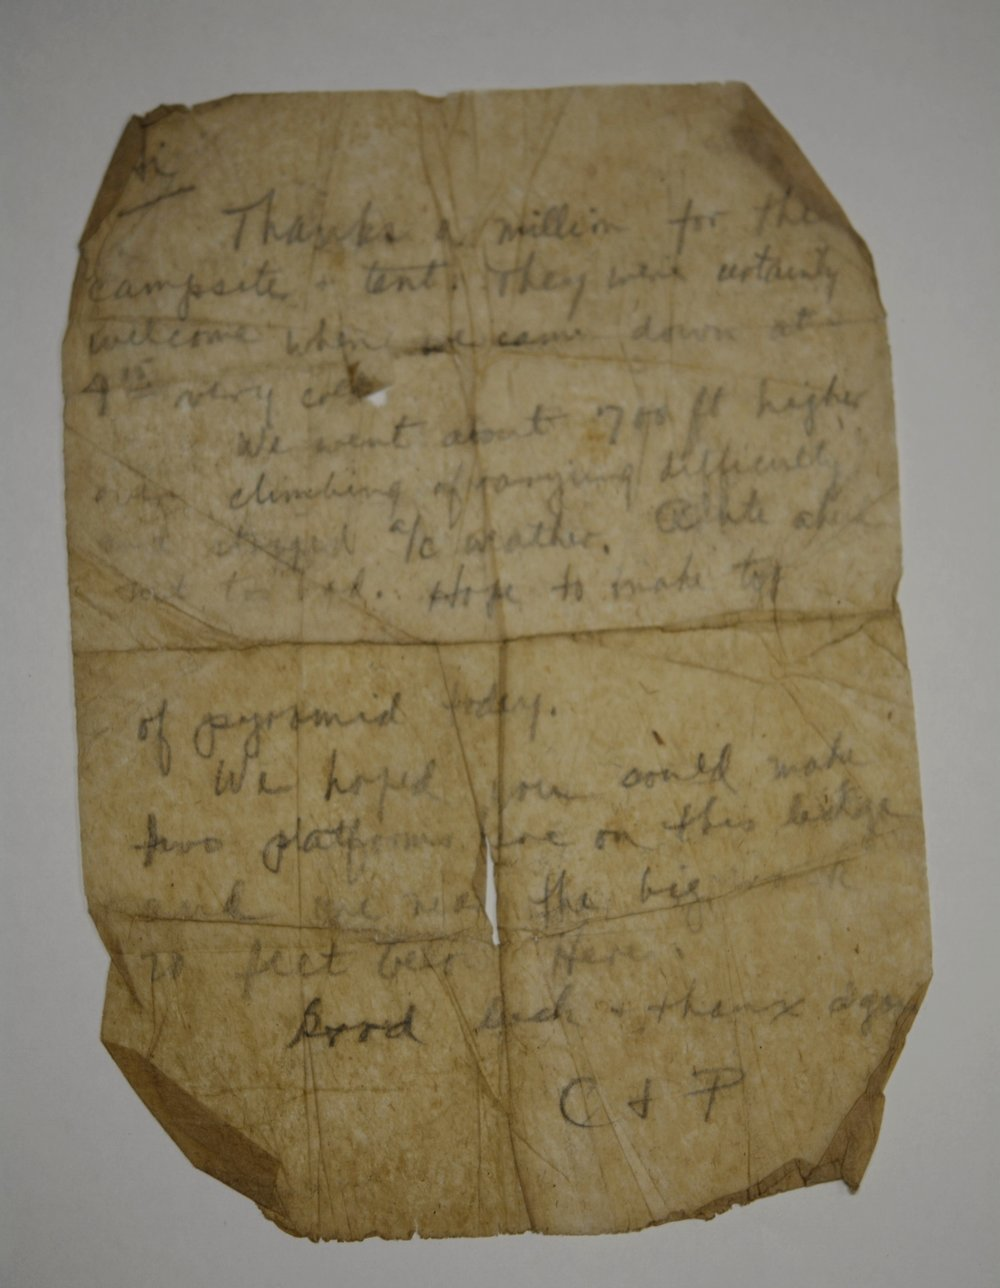 Hi
Thanks a million for the
campsite & tent. They were certainly
welcome when we came down at
9 15 very cold
We went about 700 ft higher
over climbing of varying difficulty
and stopped a/c weather. ate
out to bad. Hope to make top
of pyramid today.
We hoped you could make
two platforms here on this ledge
and one near the big rock
70 feet below Here.
Good luck & thanx again
C & P